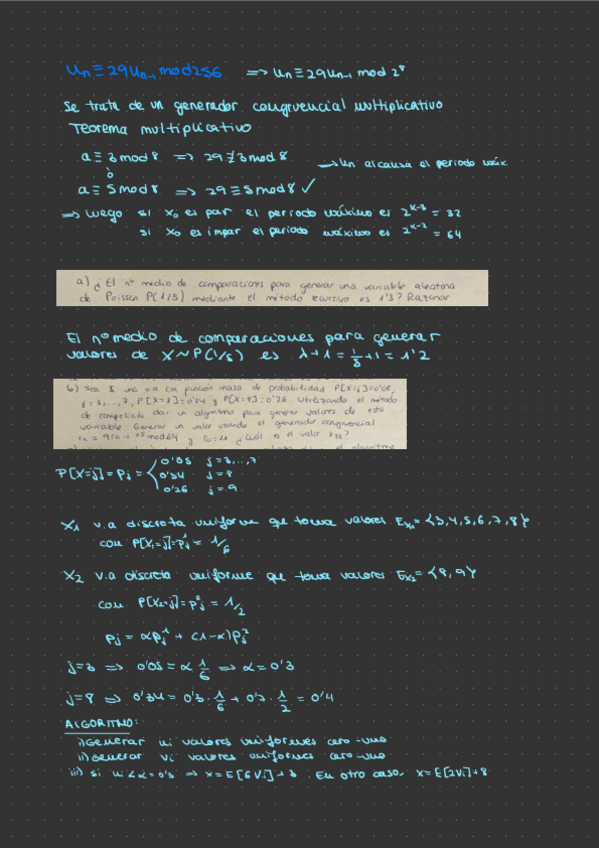 Un ≡ 29Un-1 mod 256 => Un ≡ 29Un-1 mod 2⁸
Se trata de un generador congruencial multiplicativo
Teorema multiplicativo
a ≡ 3 mod 8 => 29 ≢ 3 mod 8
ó
a ≡ 5 mod 8 => 29 ≡ 5 mod 8 ✓
→ Un alcanza el periodo máx
=> Luego si X₀ es par el periodo máximo es 2^(k-3) = 32
si X₀ es impar el periodo máximo es 2^(k-2) = 64
a) ¿El nº medio de comparaciones para generar una variable aleatoria
de Poisson P(1/5) mediante el método recursivo es 1'3? Razonar
El nº medio de comparaciones para generar
valores de X ~ P(1/5) es λ+1 = 1/5 + 1 = 1'2
b) Sea X una v.a con función masa de probabilidad P[X=j]=0'05,
j=3,...,7, P[X=8]=0'34 y P[X=9]=0'26. Utilizando el método
de composición dar un algoritmo para generar valores de esta
variable. Generar un valor usando el generador congruencial
+5 mod 64 y ¿Cuál es el valor
P[X=j] = Pj = { 0'05 j=3,..,7
0'34 j=8
0'26 j=9
X₁ v.a discreta uniforme que toma valores Ex₁ = {3,4,5,6,7,8}
con P[X₁=j]=pj¹ = 1/6
X₂ v.a discreta uniforme que toma valores Ex₂ = {8,9}
con P[X₂=j]=pj² = 1/2
pj = αpj¹ + (1-α)pj²
j=3 => 0'05 = α 1/6 => α = 0'3
j=8 => 0'34 = 0'3 · 1/6 + 0'7 · 1/2 = 0'4
ALGORITMO:
i) Generar ui valores uniformes cero-uno
ii) Generar vi valores uniformes cero-uno
iii) si ui < α = 0'3 => x = E[6Vi]+3. En otro caso, x = E[2Vi]+8